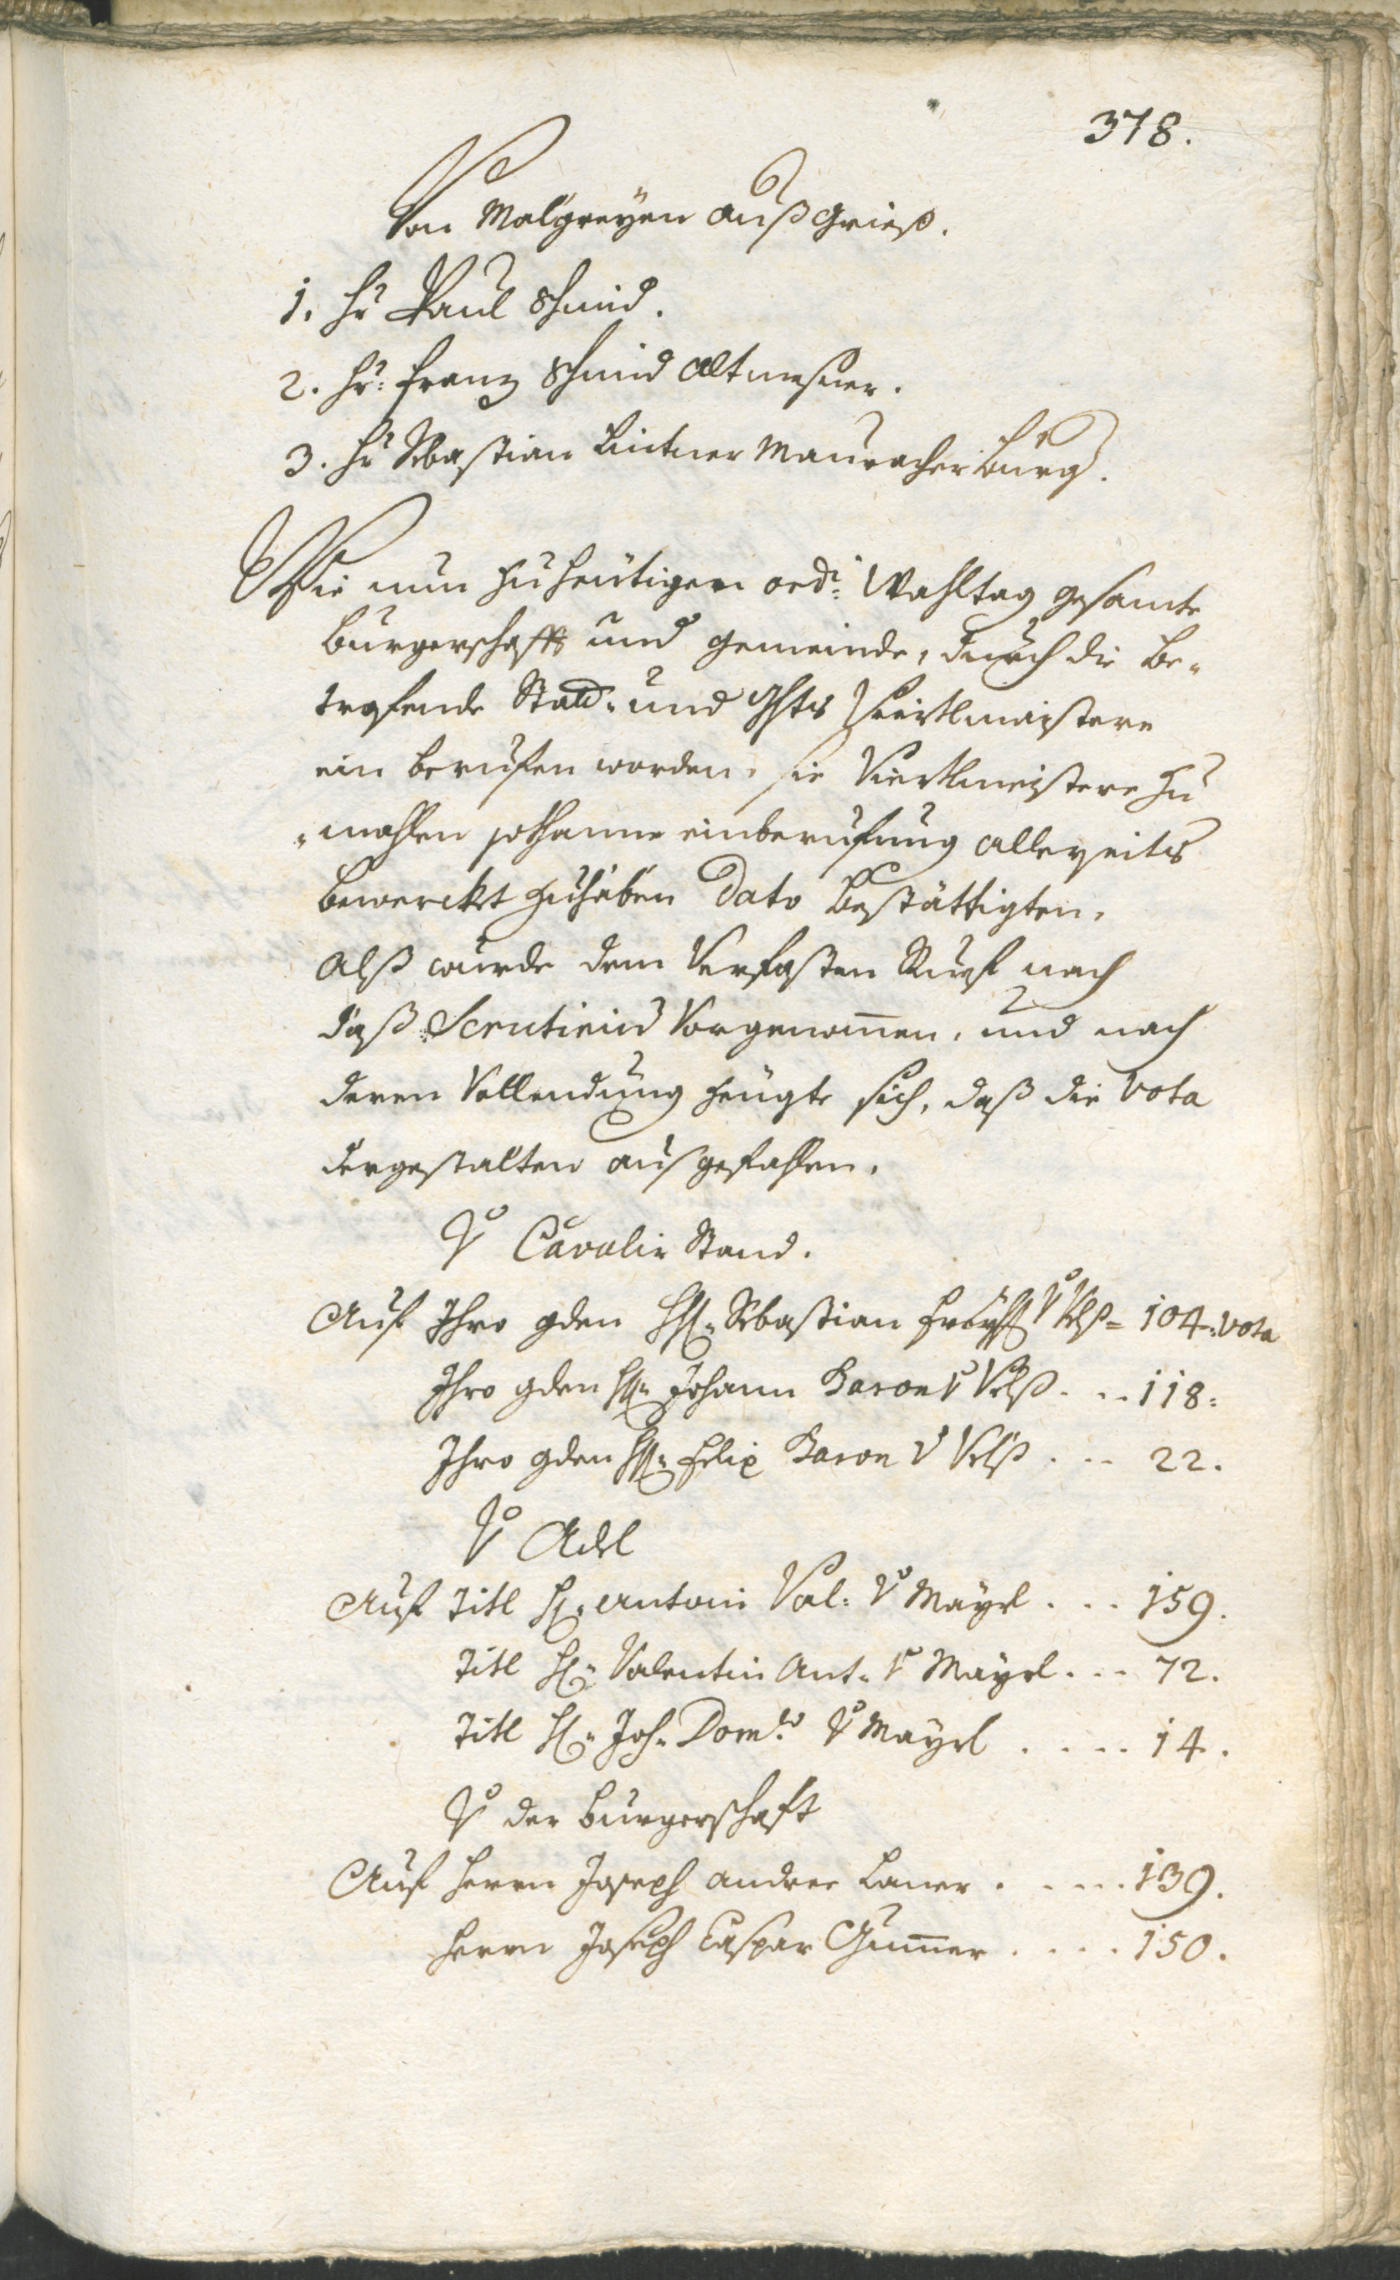 378.
Von Malgreyen auß Grieß.
1. Hr Paul Schmid.
2. Hr: Franz Schmid Altmesner.
3. Hr Sebastian Lintner Mauracher Burg.
Wie nun zu heutigen ordi: Wahltag gesamte
Burgerschafft und Gemeinde, durch die be-
trefende Stadt- und Ghts Viertlmaistere
ein beruefen worden, sie Viertlmeistere zu
-mahlen sothanne einberufung allerseits
bewerckt zuhaben Dato bestättigten.
Alß wurde dem Verfasten Ruef nach
daß Scrutinium Vorgenommen, und nach
deren Vollendung zeugte sich, daß die Vota
dergestalten ausgefahlen.
Vo Cavalier Stand.
Auf Ihro gden HH: Sebastian Freyh: Vo Velß = 104. Vota
Ihro gden HH: Johann Baron Vo Velß . . . 118:
Ihro gden HH: Felix Baron Vo Velß . . . 22.
Vo Adel
Auf Titl H: Antoni Val: Vo Mayrl . . . 159.
Titl H: Valentin Ant: Vo Mayrl . . . 72.
Titl H: Joh: Domco Vo Mayrl . . . . 14.
Vo der Burgerschaft
Auf Herrn Joseph Andree Laner . . . . . 139.
Herrn Joseph Caspar Gummer . . . . 150.